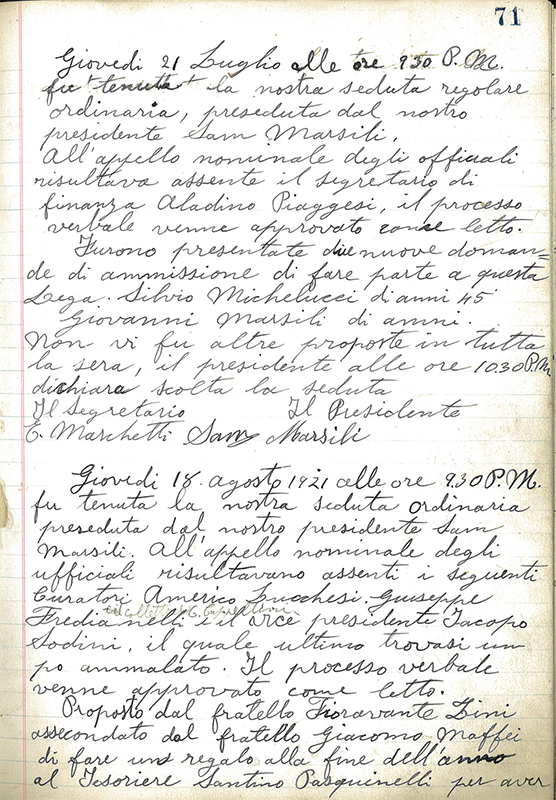 71
Giovedi 21 Luglio alle ore 930 P.M.
fu tenuta la nostra seduta regolare
ordinaria, preseduta dal nostro
presidente Sam Marsili,
All'appello nominale degli officiali
risultava assente il segretario di
finanza Aladino Piaggesi, il processo
verbale venne approvato come letto.
Furono presentate due nuove doman=
de di ammissione di fare parte a questa
Lega. Silvio Michelucci di anni 45
Giovanni Marsili di anni.
Non vi fu altre proposte in tutta
la sera, il presidente alle ore 1030 P.M
dichiara scolta la seduta
Il Segretario Il Presidente
E. Marchetti Sam Marsili
Giovedi 18. agosto 1921 alle ore 9.30 P.M.
fu tenuta la nostra seduta ordinaria
preseduta dal nostro presidente Sam
Marsili. All'appello nominale degli
ufficiali risultavano assenti i seguenti
Curatori Americo Lucchesi. Guiseppe
Fredianelli e il vice presidente Jacopo
Sodini, il quale ultimo trovasi un
po ammalato. Il processo verbale
venne approvato come letto.
Proposto dal fratello Fioravante Zini
assecondato dal fratello Giacomo Maffei
di fare uno regalo alla fine dell'anno
al Tesoriere Santino Pasquinelli per aver